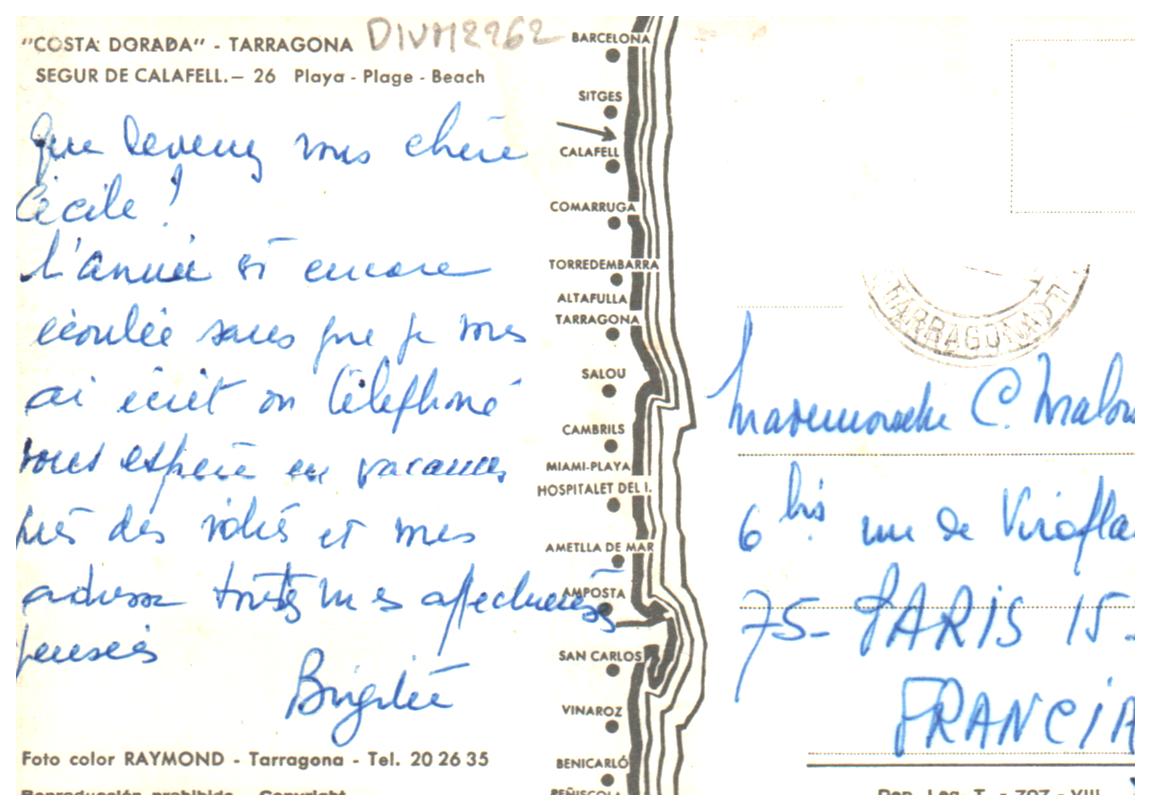 "COSTA DORADA" - TARRAGONA
DIVM2962
SEGUR DE CALAFELL.— 26 Playa - Plage - Beach
Que devenez vous chère
Cécile !
L'année si encore
écoulée sans que je vous
ai écrit ou téléphoné
vous espère en vacances
près des vôtres et vous
adresse toutes mes affectueuses
pensées
Brigitte
Foto color RAYMOND - Tarragona - Tel. 20 26 35
Reproducción prohibida - Copyright
BARCELONA
SITGES
CALAFELL
COMARRUGA
TORREDEMBARRA
ALTAFULLA
TARRAGONA
SALOU
CAMBRILS
MIAMI-PLAYA
HOSPITALET DEL I.
AMETLLA DE MAR
AMPOSTA
SAN CARLOS
VINAROZ
BENICARLÓ
PEÑISCOLA
TARRAGONA
Mademoiselle C. Malou
6 bis rue de Virofla
75- PARIS 15-
FRANCIA
Dep. Leg. T. - 797 - VIII